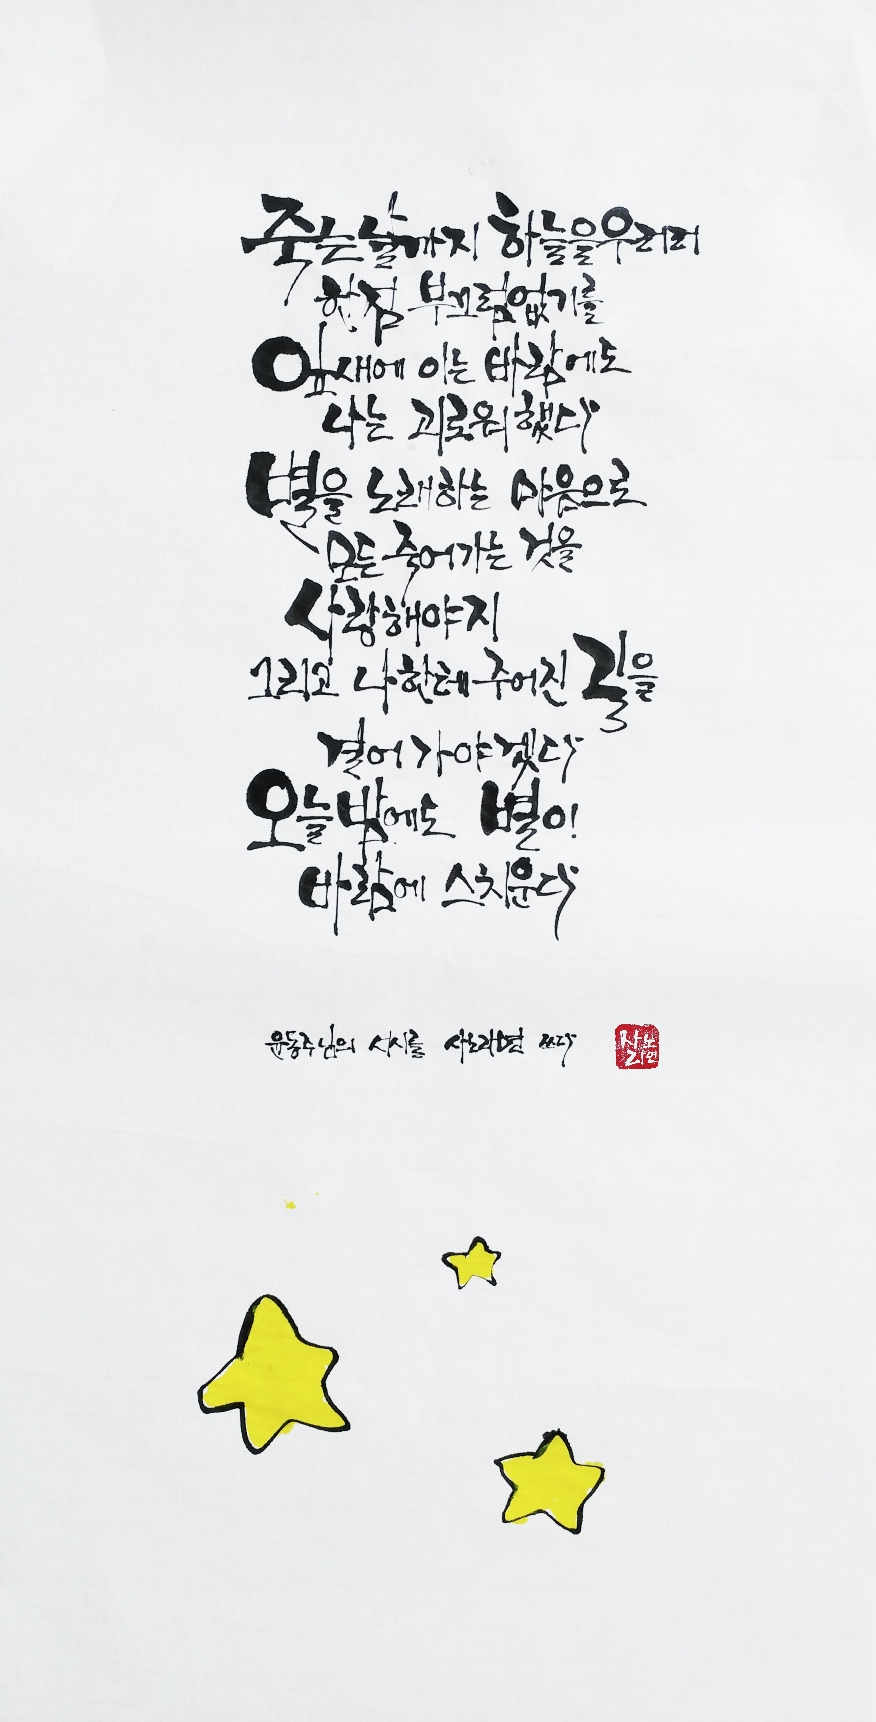 죽는날까지 하늘을우러러
한점 부끄럼없기를
잎새에 이는 바람에도
나는 괴로워했다
별을 노래하는 마음으로
모든죽어가는 것을
사랑해야지
그리고 나한테주어진 길을
걸어가야겠다
오늘밤에도 별이
바람에 스치운다
윤동주님의 서시를 사노라면 쓰다